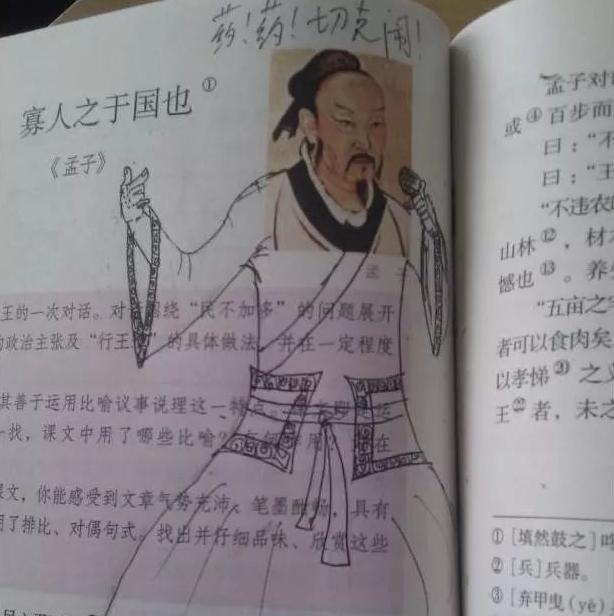 药！药！切克闹！
寡人之于国也①
《孟子》
孟子
王的一次对话。对话围绕“民不加多”的问题展开
的政治主张及“行王道”的具体做法，并在一定程度
其善于运用比喻议事说理这一特点。
一找，课文中用了哪些比喻？有何作用？在
课文，你能感受到文章气势充沛、笔墨酣畅，具有
用了排比、对偶句式。找出并仔细品味、欣赏这些
孟子对
或④百步而
曰：“不
曰：“王
“不违农
山林⑫，材
憾也⑬。养
“五亩之
者可以食肉矣
以孝悌⑳之义
王㉒者，未之
①［填然鼓之］
②［兵］兵器。
③［弃甲曳（yè）